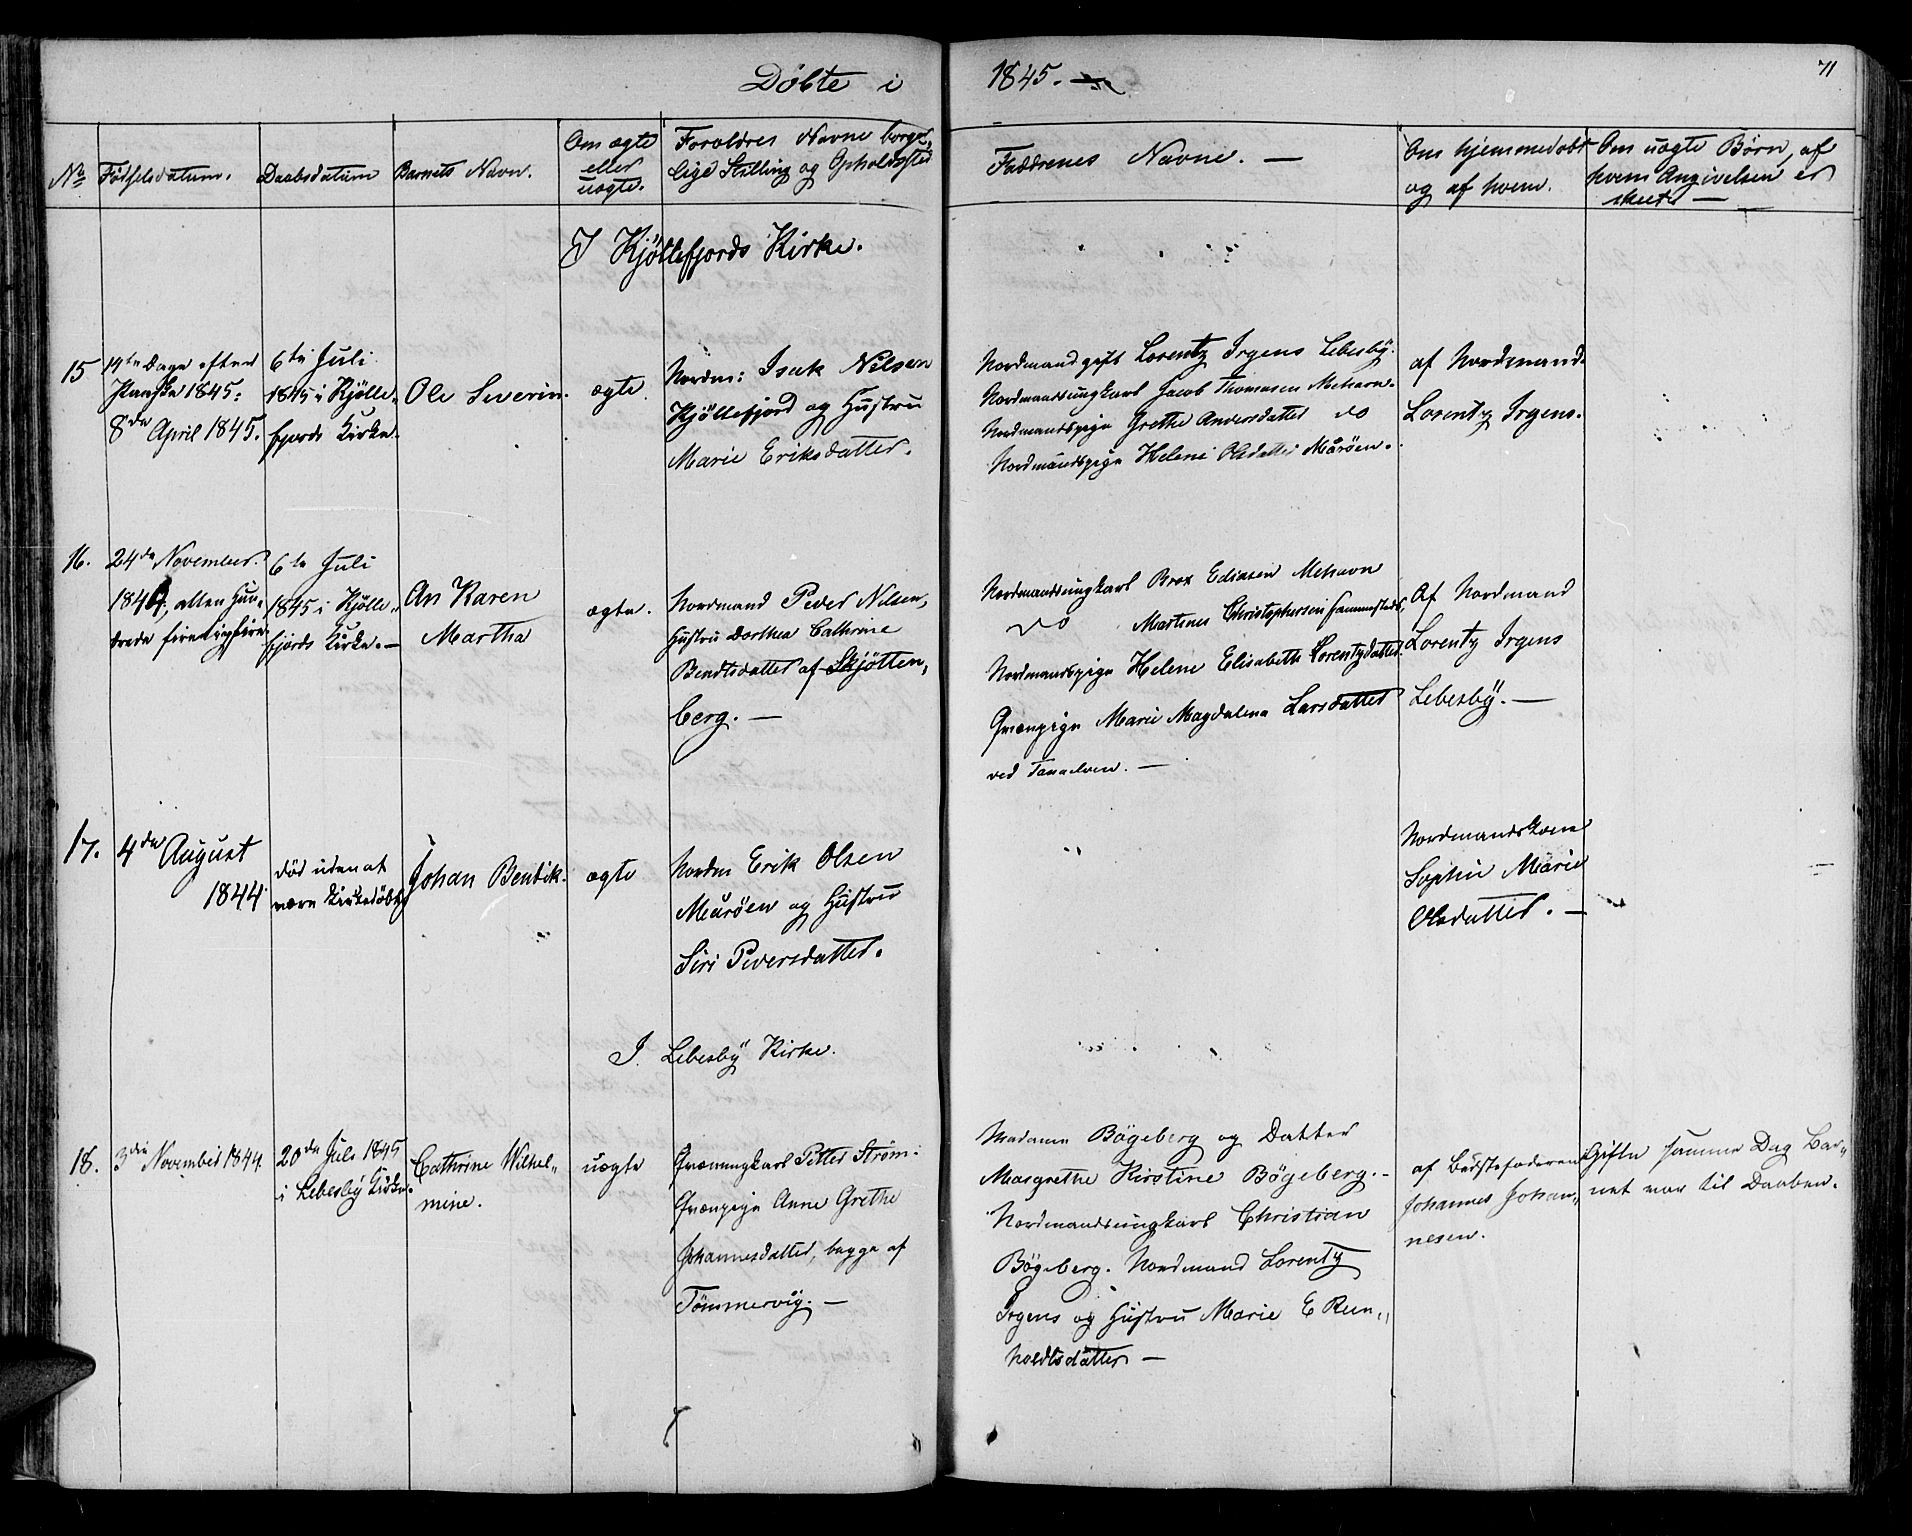 Döbte i 1845.
71
No
Födselsdatum.
Daabsdatum
Barnets Navn.
Om ægte
eller
uægte.
Forældres Navne borger-
lige Stilling og Opholdssted
Faddrenes Navne. —
Om hjemmedöbt
og af hvem.
Om uægte Börn, af
hvem Angivelsen er
skeet —
I Kjöllefjords Kirke.
15
14te Dage efter
Paaske 1845.
8de April 1845.
6te Juli
1845 i Kjölle-
fjords Kirke.
Ole Severin.
ægte.
Nordm: Isak Nilsen
Kjöllefjord og Hustru
Marie Eriksdatter.
Nordmand gift Lorentz Irgens Lebesby.
Nordmandsungkarl Jacob Thomasen Mehavn.
Nordmandspige Grethe Andersdatter do
Nordmandspige Helene Olsdatter Måröen.
af Nordmand
Lorentz Irgens.
16.
24de November.
1844, atten Hun-
drede firetigfire
6te Juli
1845 i Kjölle-
fjords Kirke. —
An Karen
Martha
ægte.
Nordmand Peder Nilsen,
Hustru Dorthea Cathrine
Bendtsdatter af Skjötten-
berg. —
Nordmandsungkarl Brox Ediasen Mehavn
do Martines Christophersen sammesteds,
Nordmandspige Helene Elisabeth Lorentzdatter
Qvænpige Marie Magdalena Larsdatter
ved Tanaelven. —
Af Nordmand
Lorentz Irgens
Lebesby. —
17.
4de August
1844
död uden at
være Kirkedöbt
Johan Bentik.
ægte
Nordm Erik Olsen
Måröen og Hustru
Siri Pedersdatter.
Nordmandskone
Sophie Marie
Olsdatter. —
I Lebesby Kirke.
18.
3die November 1844.
20de Juli 1845
i Lebesby Kirke.
Cathrine Wilhel-
mine.
uægte
Qvænungkarl Petter Ström:
Qvænpige Anne Grethe
Johannesdatter, begge af
Tömmervig. —
Madame Bögeberg og Datter
Margrethe Kirstine Bögeberg. —
Nordmandsungkarl Christian
Bögeberg. Nordmand Lorentz
Irgens og Hustru Marie E Ren-
holdtsdatter —
af Bedstefaderen
Johannes Johan-
nesen.
Gifte samme Dag Bar-
net var til Daaben.